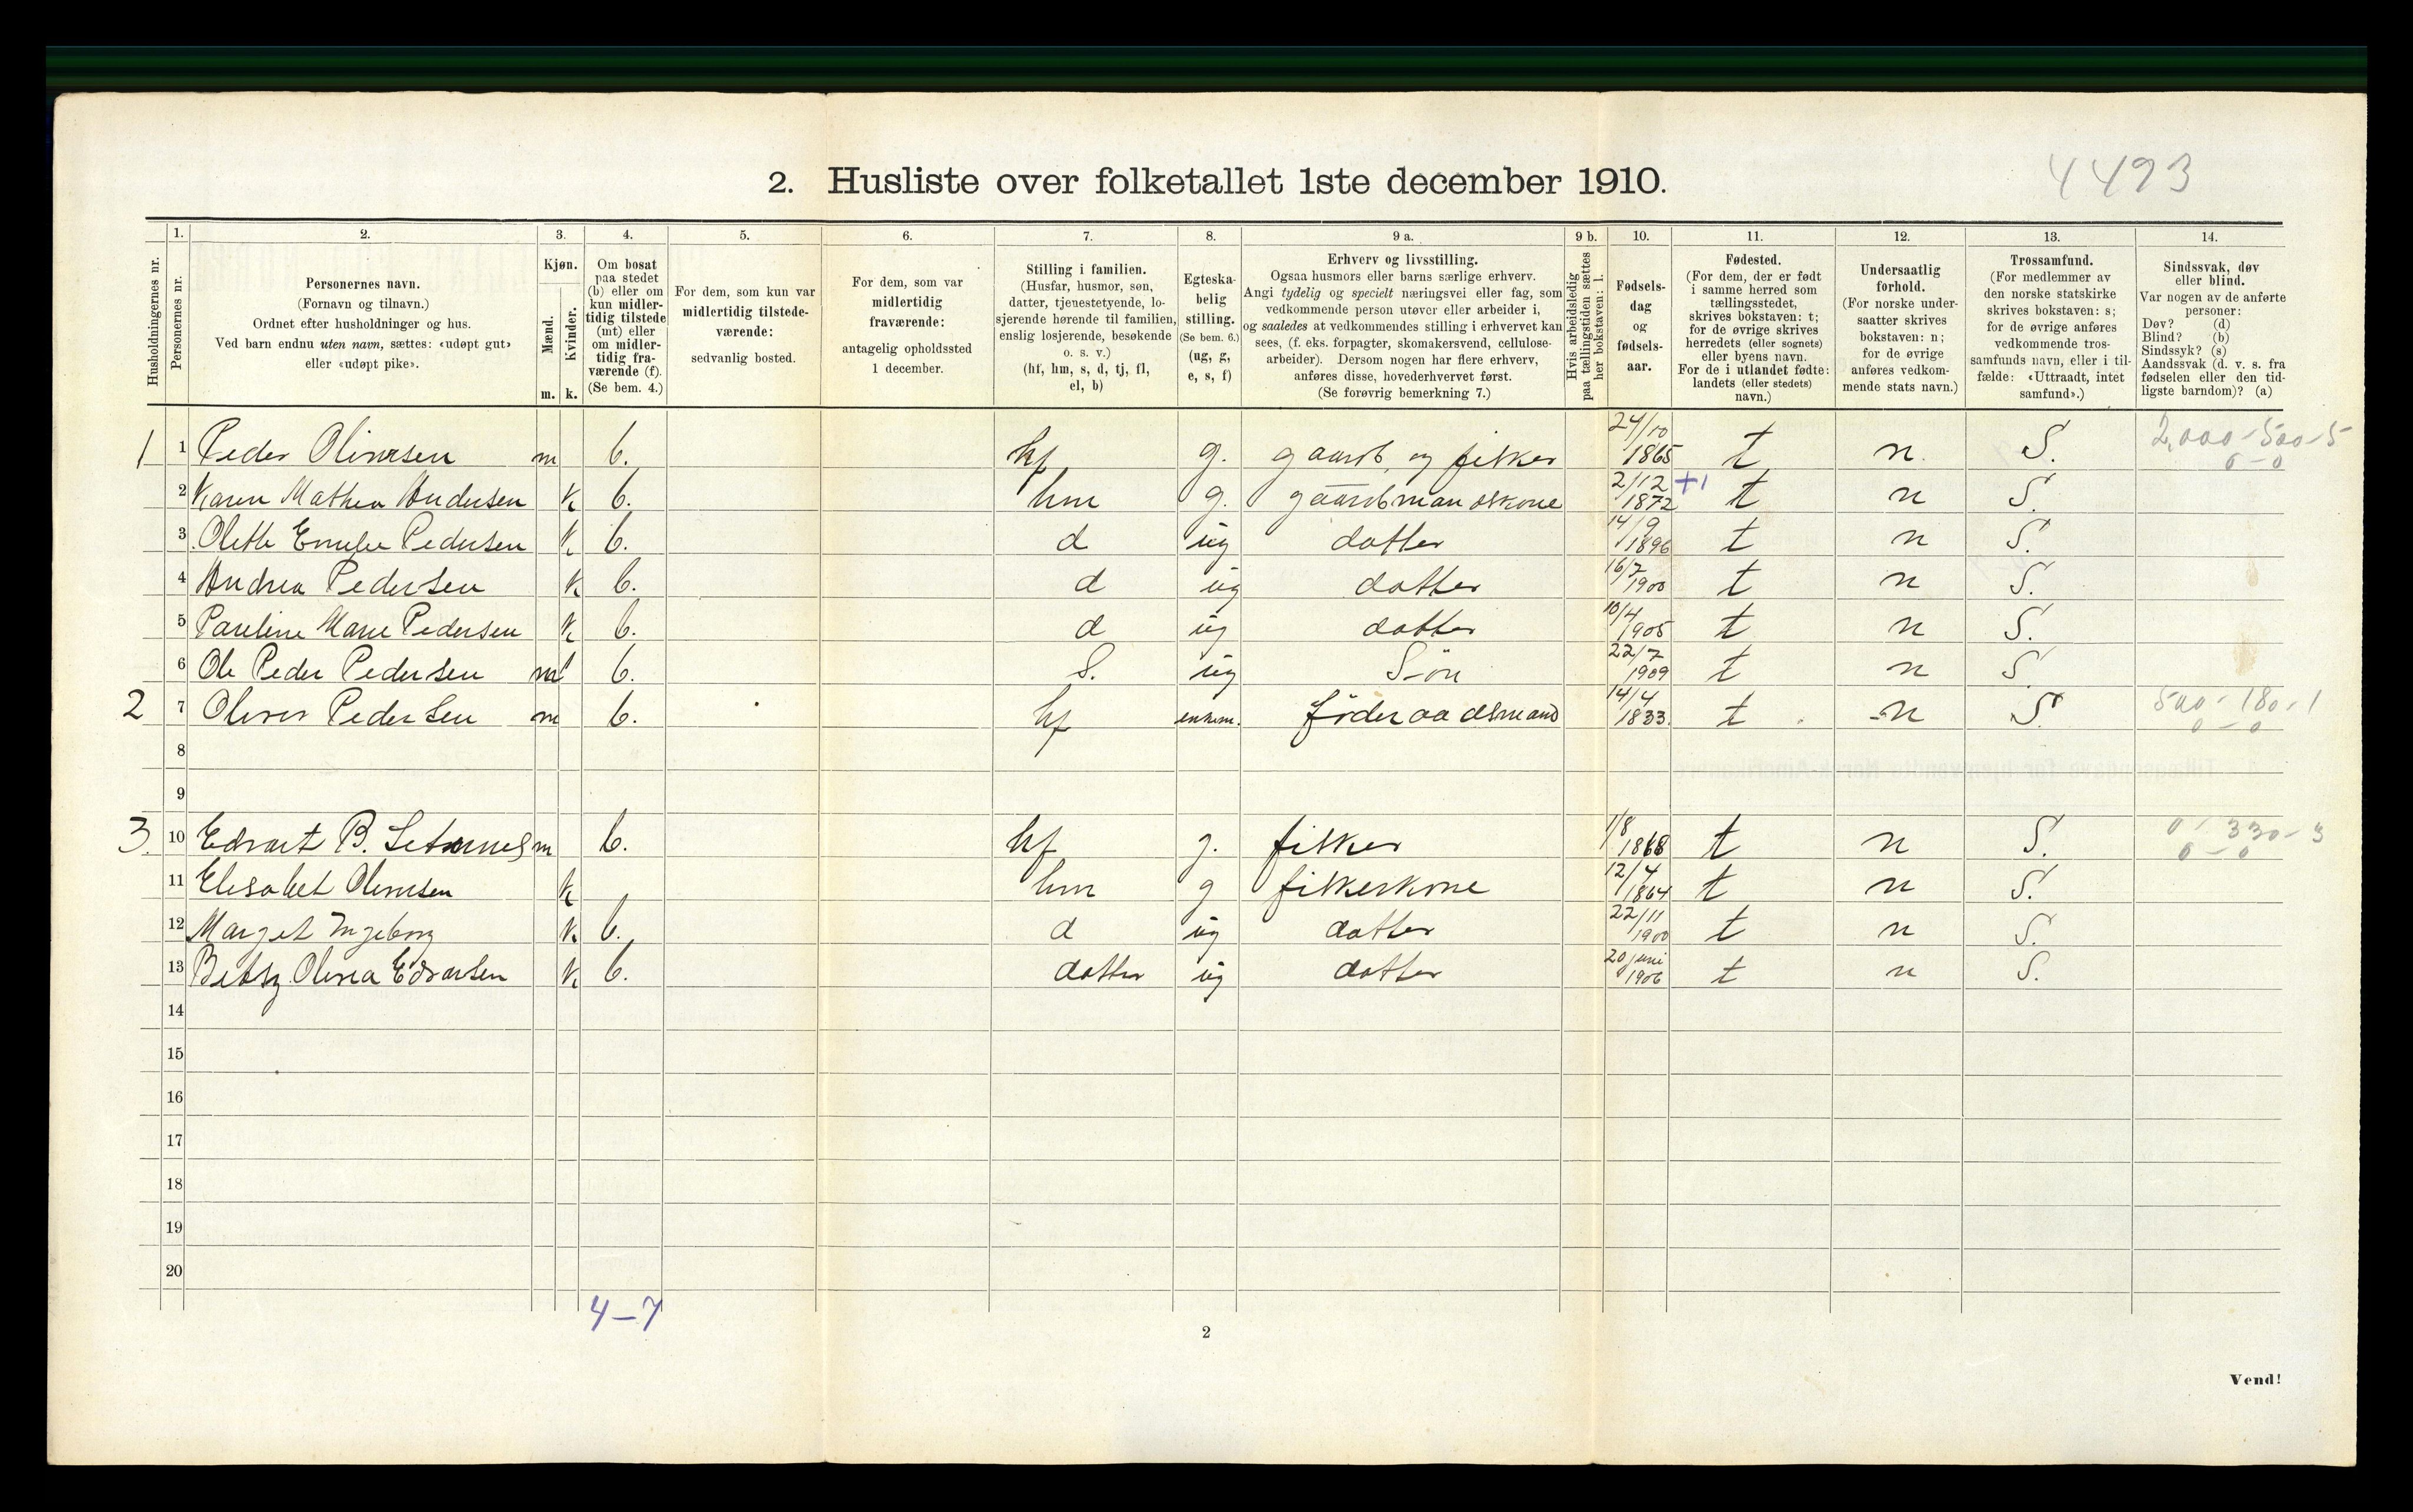 4493
2. Husliste over folketallet 1ste december 1910.
Husholdningernes nr.
1. Personernes nr.
2. Personernes navn.
(Fornavn og tilnavn.)
Ordnet efter husholdninger og hus.
Ved barn endnu uten navn, sættes: «udøpt gut»
eller «udøpt pike».
3. Kjøn.
Mænd. Kvinder.
m. k.
4. Om bosat
paa stedet
(b) eller om
kun midler-
tidig tilstede
(mt) eller
om midler-
tidig fra-
værende (f).
(Se bem. 4.)
5. For dem, som kun var
midlertidig tilstede-
værende:
sedvanlig bosted.
6. For dem, som var
midlertidig
fraværende:
antagelig opholdssted
1 december.
7. Stilling i familien.
(Husfar, husmor, søn,
datter, tjenestetyende, lo-
sjerende hørende til familien,
enslig losjerende, besøkende
o. s. v.)
(hf, hm, s, d, tj, fl,
el, b)
8. Egteska-
belig
stilling.
(Se bem. 6.)
(ug, g,
e, s, f)
9 a. Erhverv og livsstilling.
Ogsaa husmors eller barns særlige erhverv.
Angi tydelig og specielt næringsvei eller fag, som
vedkommende person utøver eller arbeider i,
og saaledes at vedkommendes stilling i erhvervet kan
sees, (f. eks. forpagter, skomakersvend, cellulose-
arbeider). Dersom nogen har flere erhverv,
anføres disse, hovederhvervet først.
(Se forøvrig bemerkning 7.)
9 b. Hvis arbeidsledig
paa tællingstiden sættes
her bokstaven: l.
10. Fødsels-
dag
og
fødsels-
aar.
11. Fødested.
(For dem, der er født
i samme herred som
tællingsstedet,
skrives bokstaven: t;
for de øvrige skrives
herredets (eller sognets)
eller byens navn.
For de i utlandet fødte:
landets (eller stedets)
navn.)
12. Undersaatlig
forhold.
(For norske under-
saatter skrives
bokstaven: n;
for de øvrige
anføres vedkom-
mende stats navn.)
13. Trossamfund.
(For medlemmer av
den norske statskirke
skrives bokstaven: s;
for de øvrige anføres
vedkommende tros-
samfunds navn, eller i til-
fælde: «Uttraadt, intet
samfund».)
14. Sindssvak, døv
eller blind.
Var nogen av de anførte
personer:
Døv? (d)
Blind? (b)
Sindssyk? (s)
Aandssvak (d. v. s. fra
fødselen eller den tid-
ligste barndom)? (a)
1 1 Peder Oliversen m b. hf g. gaardb. og fisker 24/10 1865 t n. S. 2,000-500-5 0-0
2 Karen Mathea Andersen k b. hm g. gaardbmandskone 2/12 1872 +1 t n S.
3 Olette Emelie Pedersen k b. d ug datter 14/9 1896 t n S.
4 Andrea Pedersen k b. d ug datter 16/7 1900 t n S.
5 Pauline Marie Pedersen k b. d ug datter 10/4 1905 t n S.
6 Ole Peder Pedersen m b. S. ug Sön 22/7 1909 t n S
2 7 Oliver Pedersen m b. hf enkem. föderaadsmand 14/4 1833. t n S. 500-180-1 0-0
8
9
3. 10 Edvart B. m b. hf g. fisker 1/8 1868 t n S. 0-330-3 0-0
11 Elisabet Oliversen k hm g fiskerkone 12/4 1864 t n S.
12 Marget Ingeborg k b. d ug datter 22/11 1900 t n S.
13 Betsy Olivia Edvartsen k b. datter ug datter 20 juni 1906 t n S.
14
15
16
17
18
19
20
4-7
2
Vend!